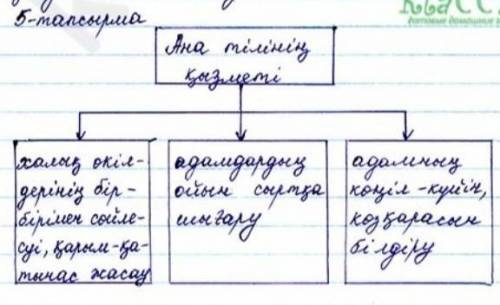 КЛАСС!
готовые домашние з
5-тапсырма
Ана тілінің
қызметі
халық өкіл-
дерінің бір-
бірімен сөйле-
суі, қарым-қа-
тынас жасау
адамдардың
ойын сыртқа
шығару
адамның
көңіл-күйін,
көзқарасын
білдіру